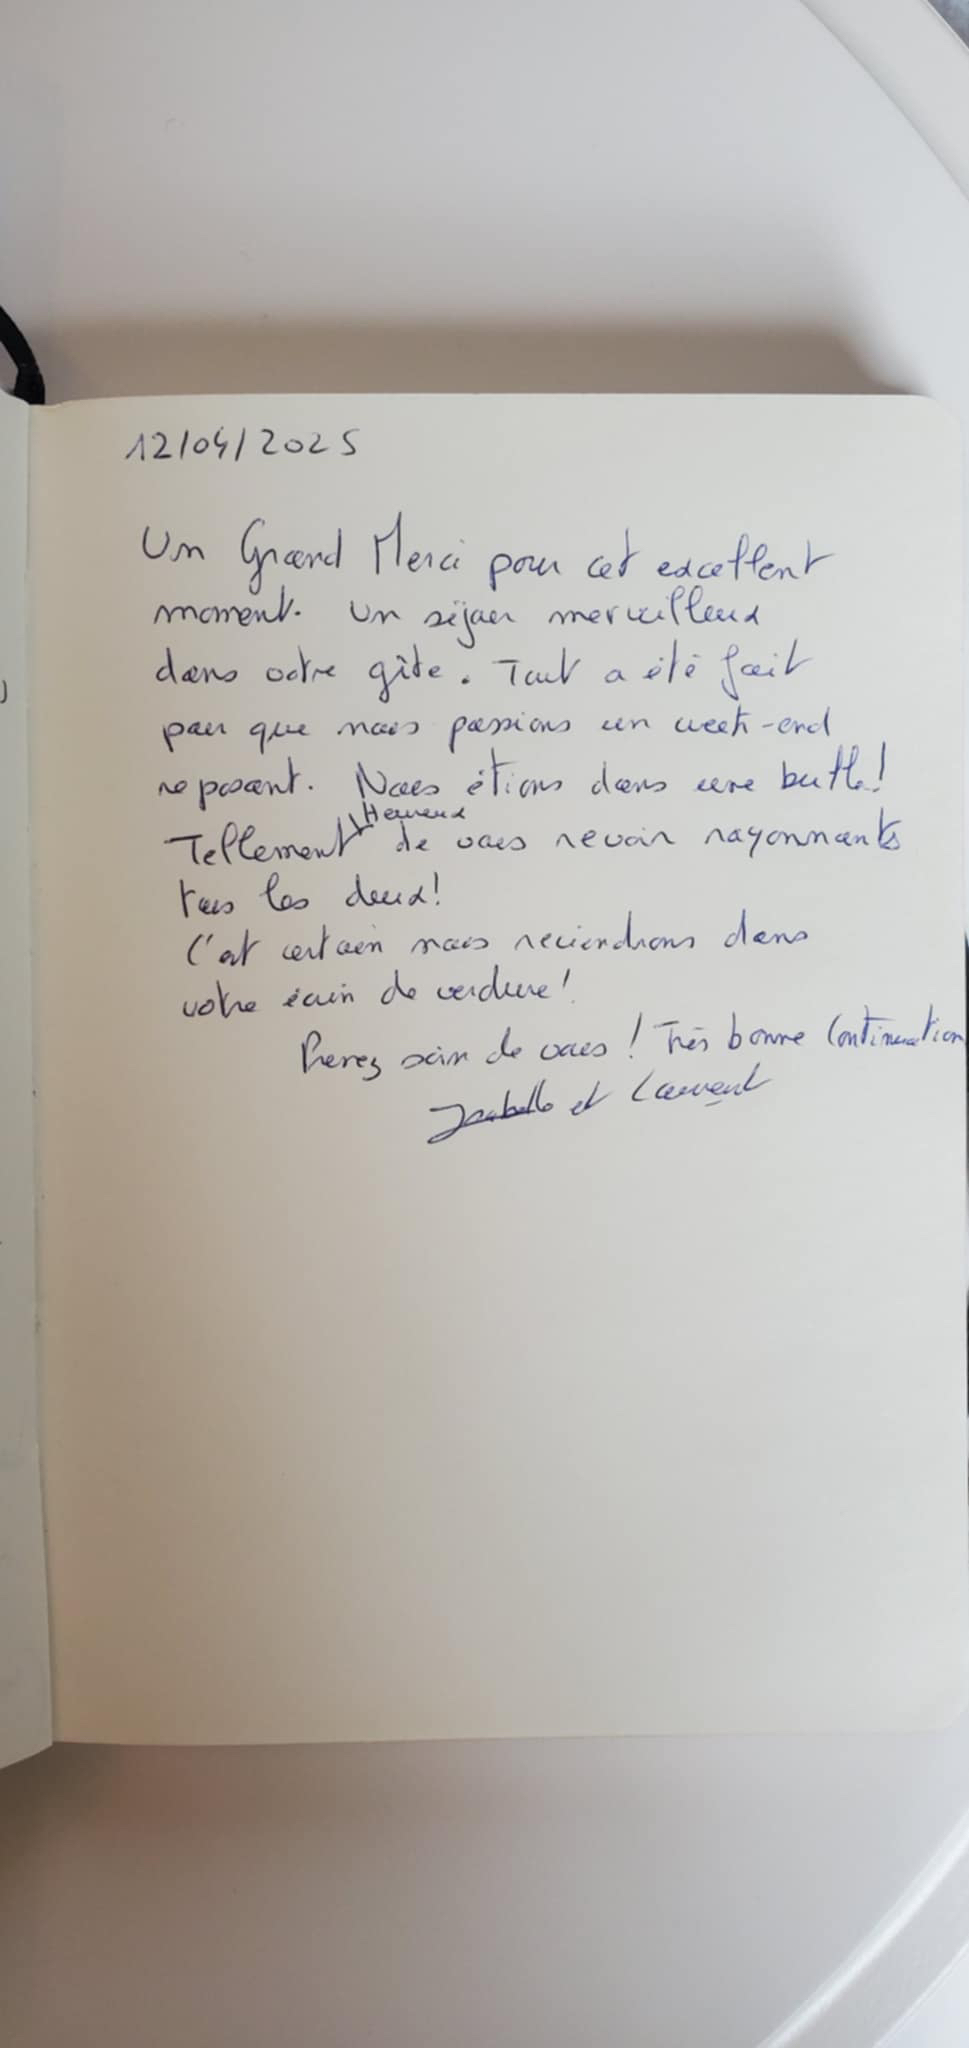 12/04/2025
Un Grand Merci pour cet excellent
moment. Un séjour merveilleux
dans votre gîte. Tout a été fait
pour que nous passions un week-end
reposant. Nous étions dans une bulle!
Heureux
Tellement de vous revoir rayonnants
tous les deux!
C'est certain nous reviendrons dans
votre écrin de verdure!
Prenez soin de vous! Très bonne Continuation
Isabelle et Laurent